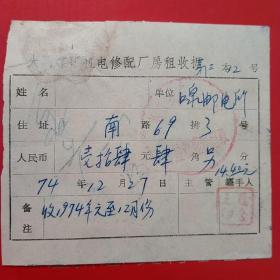 电修配厂房租收据 第三本2号
姓名 单位 邮电所
住址 南路69排3号
人民币 壹拾肆元肆角 分 14.40元
74年12月27日 主管 经手人
备注 收1974年元至12月份